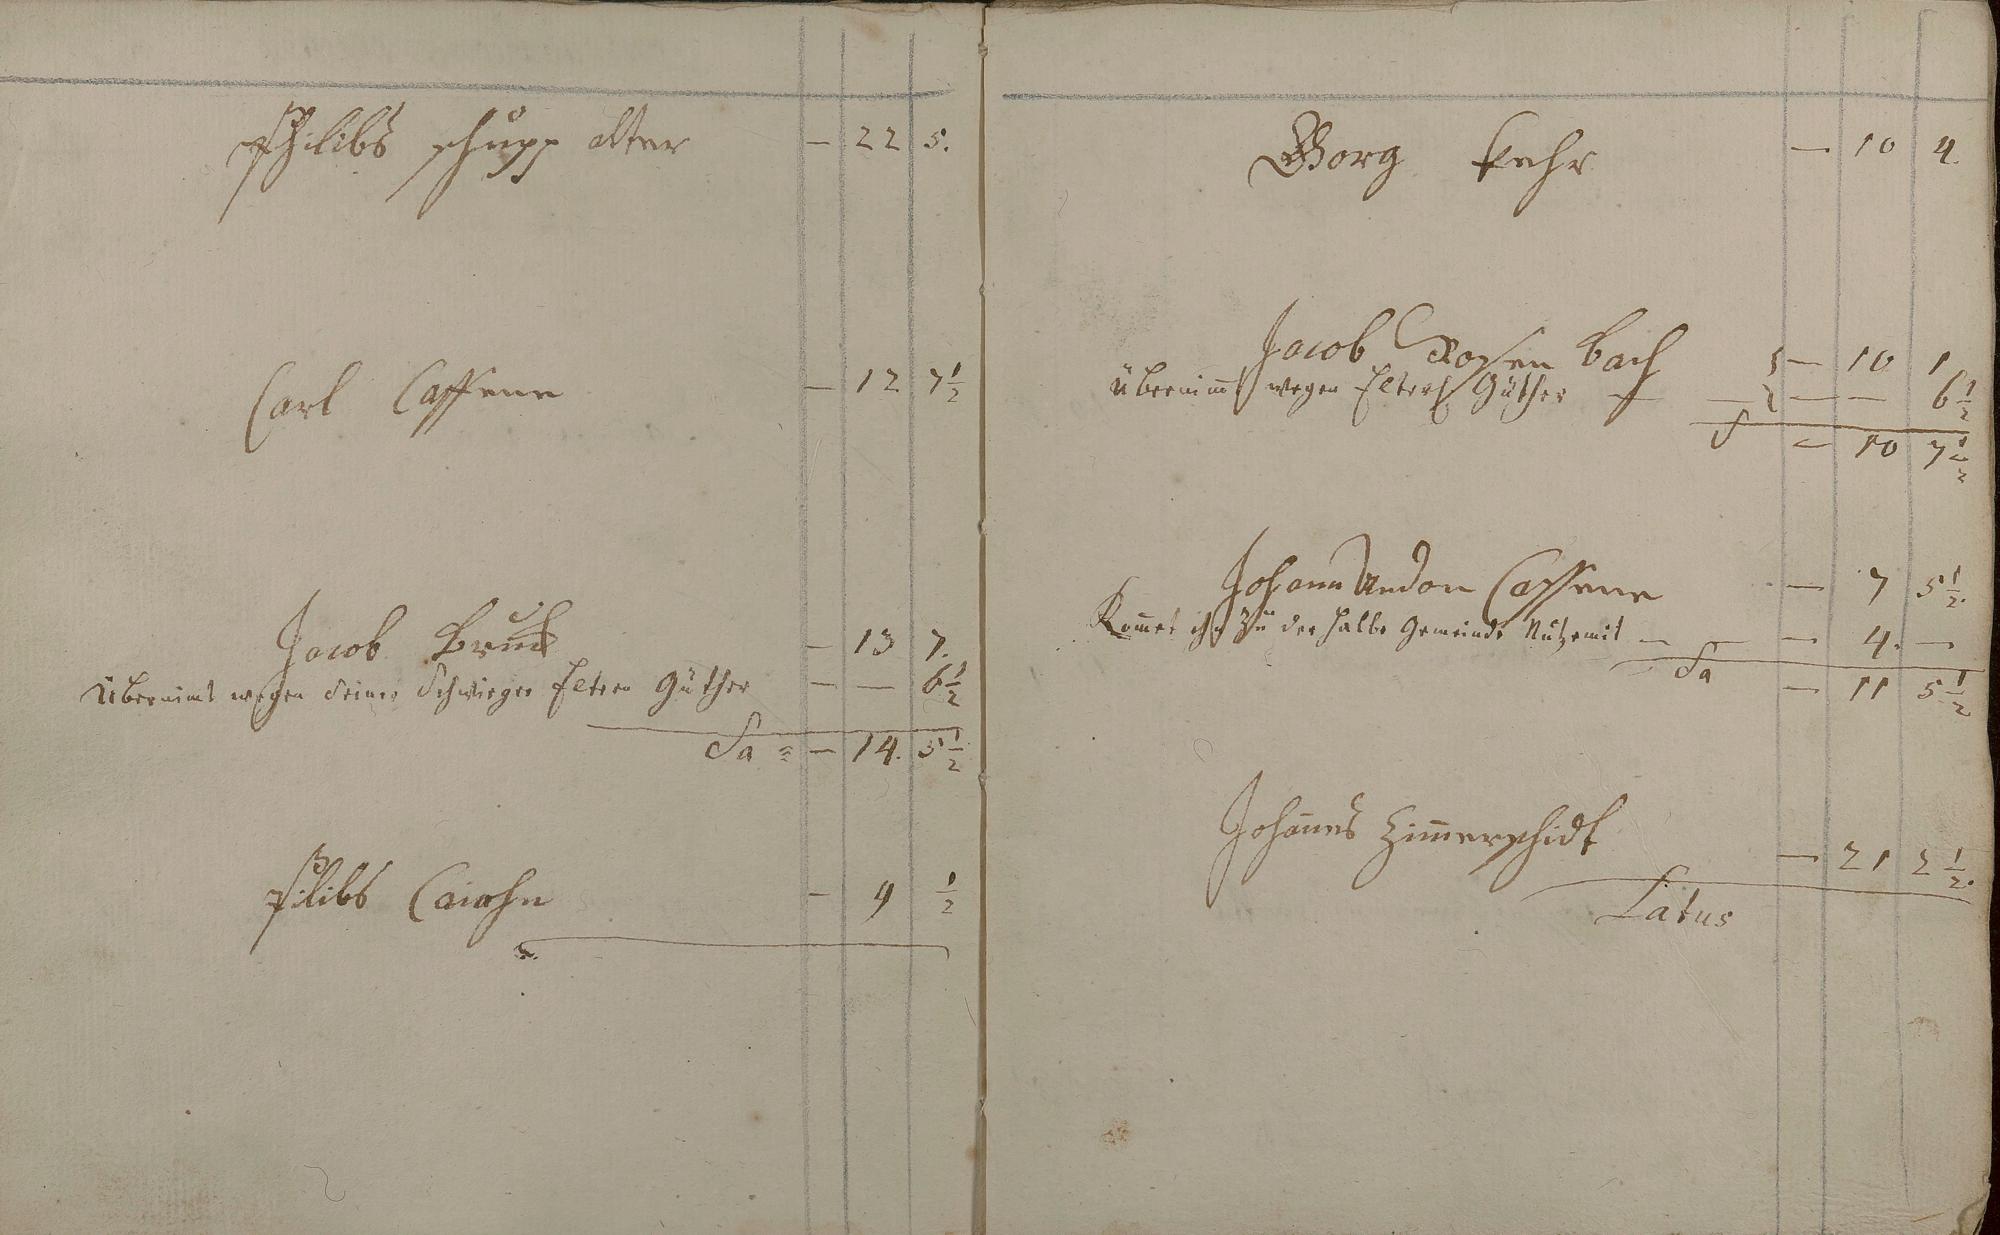 Philibs schupp alter — 22 5.
Carl Caffene — 12 7 1/2
Jacob Bruck — 13 7.
übernimt wegen seiner Schwieger Eltern Güther — — 6 1/2
Sa = — 14. 5 1/2
Pilibs — 9 1/2
Georg Fehr — 10 4.
Jacob Rossen bach — 10 1
übernimt wegen Güther — — — — 6 1/2
S — 10 7 1/2
Johann Andon Cassene — 7 5 1/2.
Komet ihm zu der halbe Gemeinde Nutz mit — — — 4. —
Sa — 11 5 1/2
Johanes Zimerschidt — 21 2 1/2.
Latus